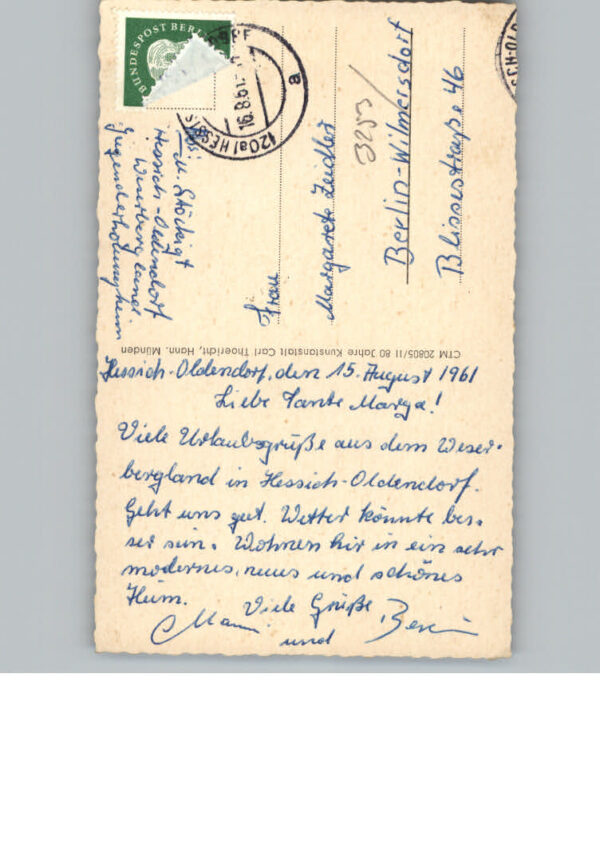 Hessich-Oldendorf, den 15. August 1961
Liebe Tante Marga!
Viele Urlaubsgrüße aus dem Weser-
bergland in Hessich-Oldendorf.
Geht uns gut. Wetter könnte bes-
ser sein. Wohnen hir in ein sehr
modernes, neues und schönes
Heim. Viele Grüße
und
CTM 20805/11 80 Jahre Kunstanstalt Carl Thoericht, Hann. Münden
Frau
Margarete Zeidler
Berlin-Wilmersdorf
Blissestraße 46
M. Stöckigt
Hessich-Oldendorf
Weserbergland
Jugenderholungsheim
BUNDESPOST BERLIN
16.8.61
(20a) HESSISCH
a